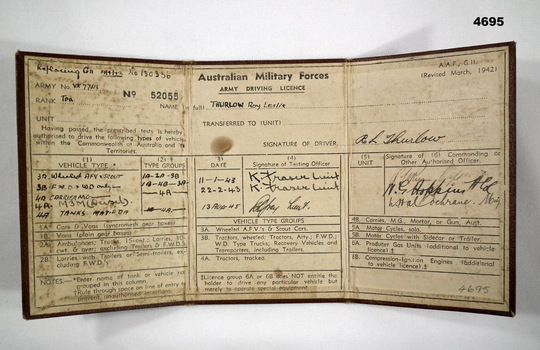 4695
Replacing G11 No 130336
ARMY NO. VX 77113
RANK Tpr.
Nº 52055
NAME
UNIT
Having passed the prescribed tests is hereby
authorised to drive the following types of vehicles
within the Commonwealth of Australia and its
Territories.
Australian Military Forces
ARMY DRIVING LICENCE
full) THURLOW Roy Leslie
TRANSFERRED TO (UNIT)
SIGNATURE OF DRIVER,
A.A.F., G.11.
(Revised March, 1942)
R L Thurlow
(1)
VEHICLE TYPE *
(2)
TYPE GROUPS
3A Wheeled AFV & SCOUT 1A-2A-3B
3B F.W.D. & WD only 1B-4B-3A
4A CARRIER MG 4A
4A M3M
4A TANKS MATILDA 4A
1A Cars & Vans (syncromesh gear boxes)
1B Vans (plain gear boxes)
2A Ambulances, Trucks
cwt. & over; excluding Trailers & F.W.D.S.
2B Lorries with Trailers or Semi-trailers, ex-
cluding F.W.D.S
NOTES.—*Enter name of tank or vehicle
grouped in this column.
†Rule through space on line of entry
prevent unauthorised
(3)
DATE
(4)
Signature of Testing Officer
11-1-43 K. Fraser Lieut
22-2-43 K. Fraser Lieut
13 AUG 45 Lieut.
VEHICLE TYPE GROUPS
3A. Wheeled A.F.V.'s & Scout Cars.
3B. Trucks, wheeled: Tractors, Arty.; F.W.D.;
W.D. Type Trucks; Recovery Vehicles and
Transporters, including Trailers.
4A. Tractors, tracked.
‡Licence group 6A or 6B does NOT entitle the
holder to drive any particular vehicle but
merely to operate special equipment.
(5)
UNIT
(6)
Signature of Commanding or
Other Authorised Officer.
W. G. Hopkins
Cochrane. Maj.
4B. Carriers, M.G., Mortar, or Gun, Aust.
5A. Motor Cycles, solo.
5B. Motor Cycles with Sidecar or Trailer.
6A. Producer Gas Units (additional to vehicle
licence) ‡
6B. Compression-Ignition Engines (additional
to vehicle licence) ‡
4695